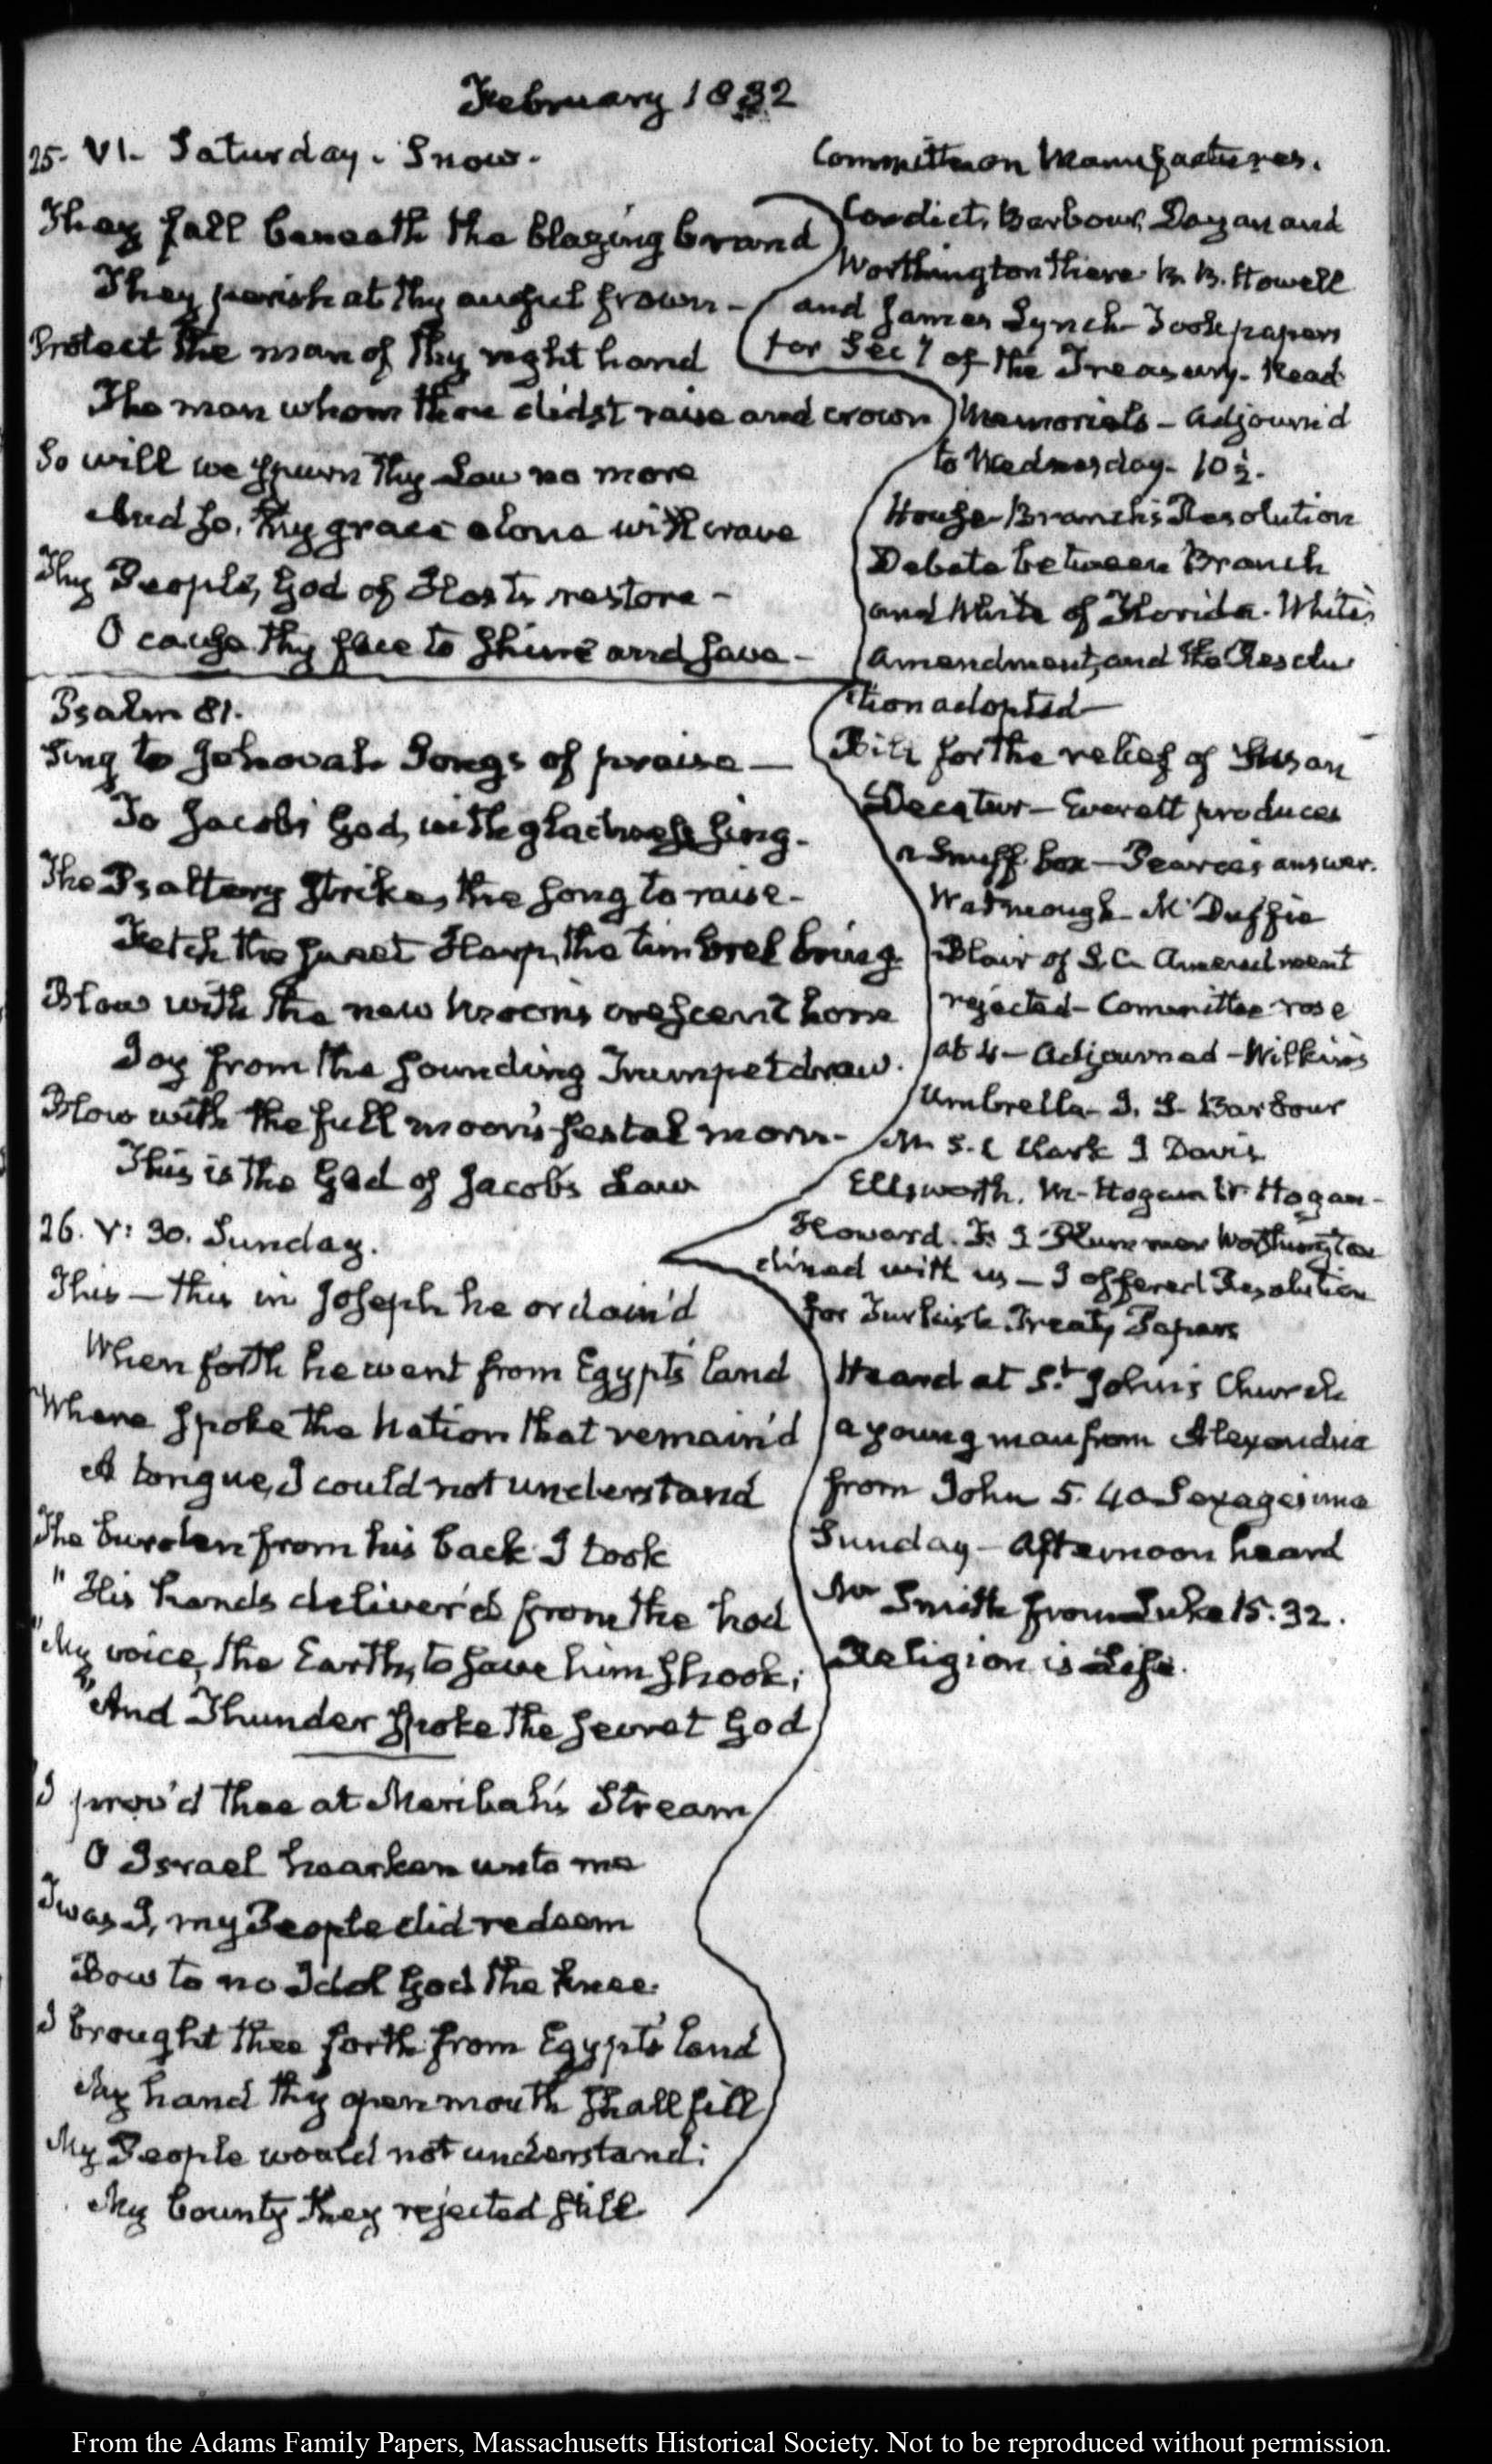 February 1832
25. VI. Saturday. Snow.
They fall beneath the blazing brand
They perish at thy awful frown –
Protect the man of thy right hand
The man whom thou didst raise and crown
So will we spurn thy Law no more
And so, thy grace alone will crave
Thy People, God of Hosts restore –
O cause thy face to shine and save –
Psalm 81.
Sing to Jehovah Songs of praise —
To Jacob's God, with gladness sing.
The Psaltery strike, the song to raise –
Fetch the sweet Harp, the timbrel bring
Blow with the new moon's crescent horn
Joy from the sounding Trumpet draw.
Blow with the full moon's festal morn –
This is the God of Jacob's Law
26. V: 30. Sunday.
This — this in Joseph he ordain'd
When forth he went from Egypt's land
Where spoke the Nation that remain'd
A tongue, I could not understand
The burden from his back I took
"His hands deliver'd from the hod
"My voice, the Earth, to save him shook;
"And Thunder spoke the secret God
I prov'd thee at Meribah's Stream
O Israel hearken unto me
Twas I, my People did redeem
Bow to no Idol God the knee.
I brought thee forth from Egypt's land
My hand thy open mouth shall fill
My People would not understand;
My bounty they rejected still
Committee on Manufactures.
Condict, Barbour, Dayan and
Worthington there. B. B. Howell
and James Lynch Took papers
for Secy of the Treasury. Read
Memorials – Adjourn'd
to Wednesday. 10 ½.
House – Branch's Resolution
Debate between Branch
and White of Florida. White's
Amendment, and the Resolu
tion adopted —
Bill for the relief of Susan
Decatur — Everett produces
a Snuff box — Pearce's answer.
Watmough McDuffie
Blair of S.C. Amendment
rejected – Committee rose
at 4 – Adjourned – Wilkins's
Umbrella – J. S. Barbour
M S. C Clark J Davis
Ellsworth. M. Hogan W Hogan –
Howard. F. J Plummer Worthington
dined with us – I offered Resolution
for Turkish Treaty Papers
Heard at St. John's Church
a young man from Alexandria
from John 5. 40 Sexagesima
Sunday – Afternoon heard
Mr Smith from Luke 15. 32.
Religion is Life.
From the Adams Family Papers, Massachusetts Historical Society. Not to be reproduced without permission.